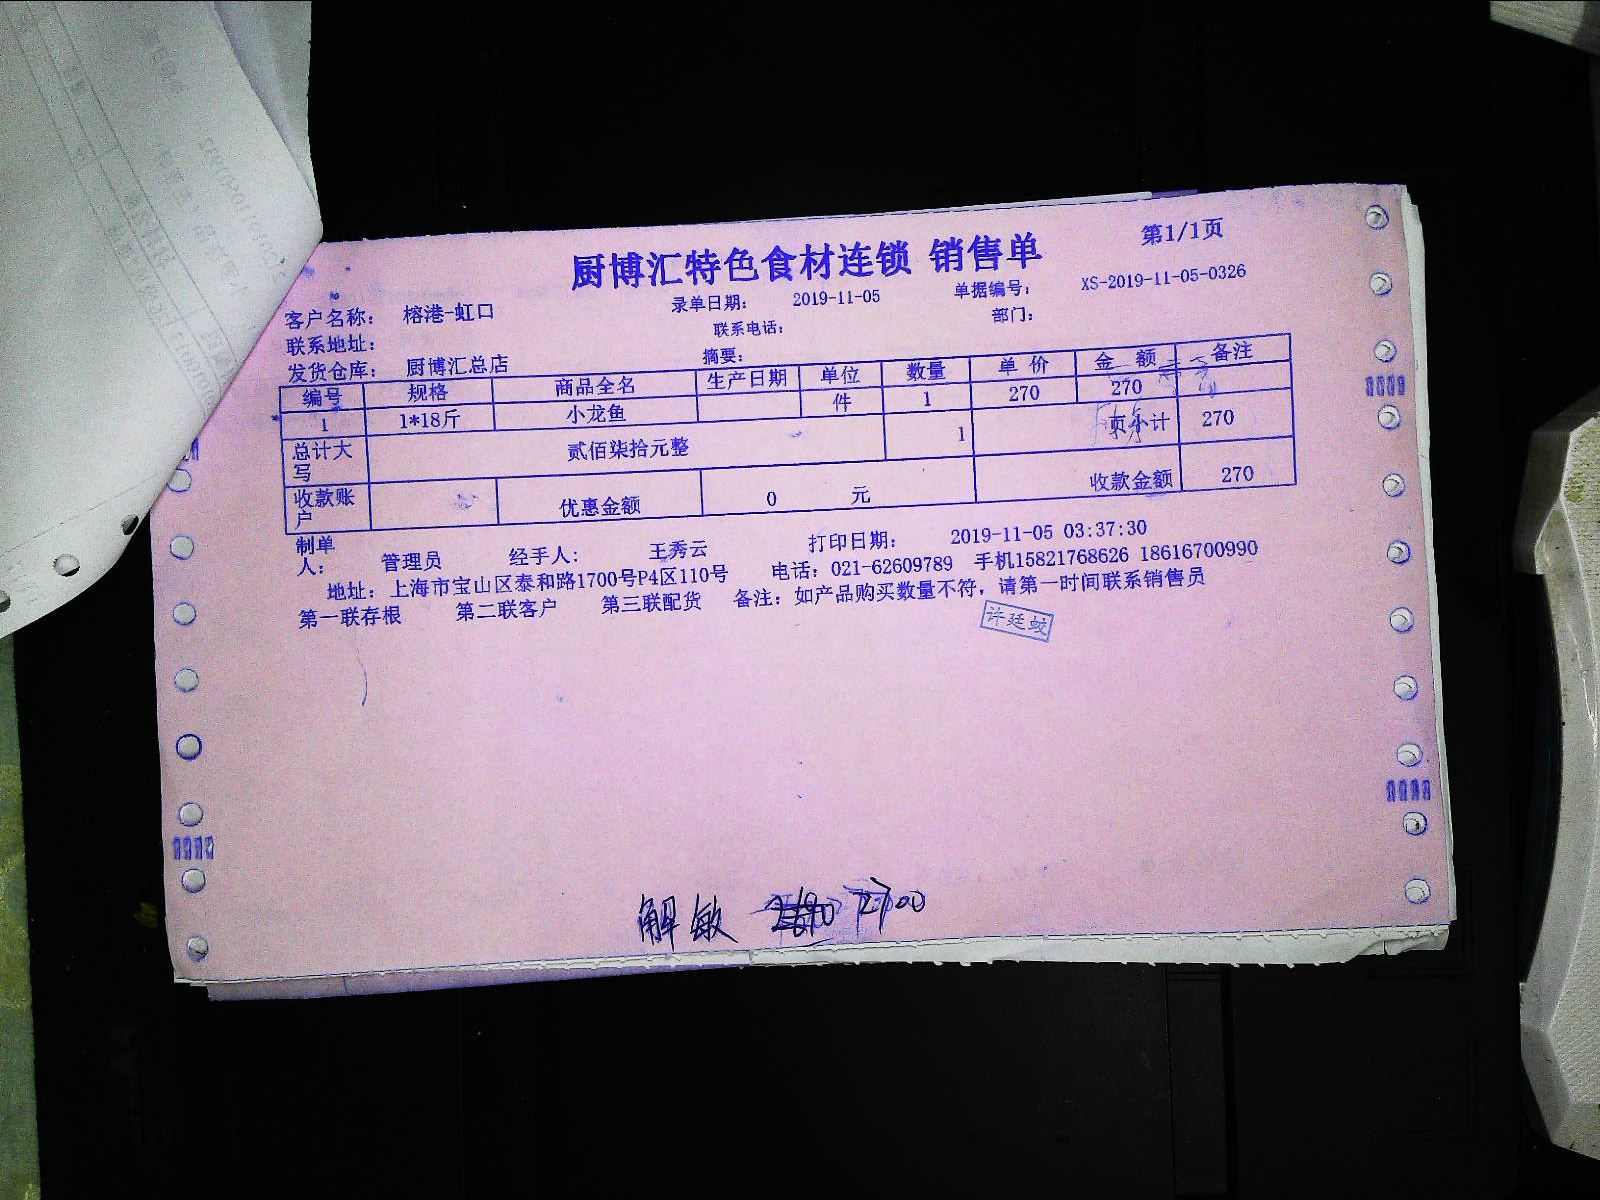 厨博汇特色食材连锁 销售单 第1/1页
客户名称： 榕港-虹口 录单日期： 2019-11-05 单据编号： XS-2019-11-05-0326
联系地址： 联系电话： 部门：
发货仓库： 厨博汇总店 摘要：
编号 规格 商品全名 生产日期 单位 数量 单价 金额 备注
1 1*18斤 小龙鱼 件 1 270 270
总计大写 贰佰柒拾元整 1 页小计 270
收款账户 优惠金额 0 元 收款金额 270
制单人： 管理员 经手人： 王秀云 打印日期： 2019-11-05 03:37:30
地址：上海市宝山区泰和路1700号P4区110号 电话：021-62609789 手机15821768626 18616700990
第一联存根 第二联客户 第三联配货 备注：如产品购买数量不符，请第一时间联系销售员
许廷蛟
解敏 2700